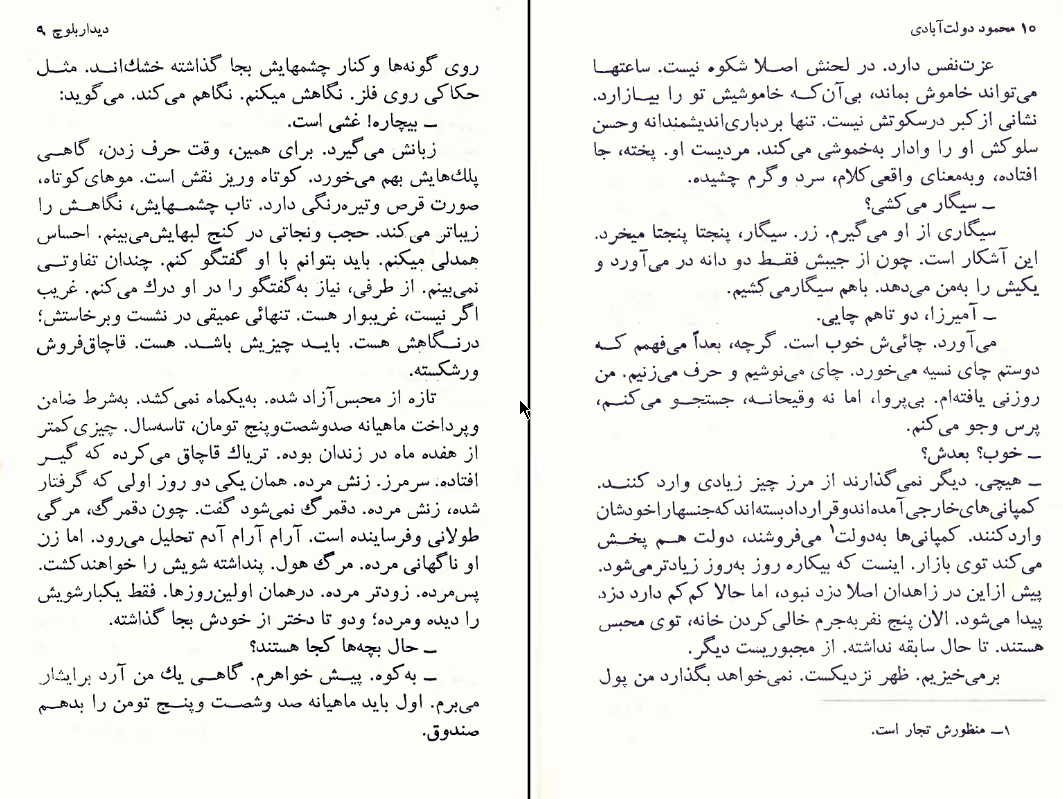 دیدار بلوچ ۹
روی گونه‌ها و کنار چشمهایش بجا گذاشته خشك‌انـد. مثـل
حکاکی روی فلز. نگاهش میکنم. نگاهم می‌کند. می‌گوید:
ـ بیچاره! غشی است.
زبانش می‌گیرد. برای همین، وقت حرف زدن، گاهـی
پلك‌هایش بهم می‌خورد. کوتاه وریز نقش است. موهای‌کوتاه،
صورت قرص وتیره‌رنگی دارد. تاب چشمـهایش، نگاهـش را
زیباتر می‌کند. حجب ونجاتی در کنج لبهایش‌می‌بینم. احساس
همدلی میکنم. باید بتوانم با او گفتگو کنم. چندان تفاوتـی
نمی‌بینم. از طرفی، نیاز به‌گفتگو را در او درك می‌کنم. غریب
اگر نیست، غریبوار هست. تنهائی عمیقی در نشست وبرخاستش؛
درنـگاهش هست. بایـد چیزیش باشـد. هست. قاچاق‌فروش
ورشکسته.
تازه از محبس‌آزاد شده. به‌یکماه نمی‌کشد. به‌شرط ضامن
وپرداخت ماهیانه صدوشصت‌وپنج تومان، تاسه‌سال. چیزی‌کمتر
از هفده ماه در زندان بوده. تریاك قاچاق می‌کرده که گیـر
افتاده. سرمرز. زنش مرده. همان یکی دو روز اولی که گرفتار
شده، زنش مرده. دقمرگ نمی‌شود گفت. چون دقمرگ، مرگی
طولانی وفرساینده است. آرام آرام آدم تحلیل می‌رود. اما زن
او ناگهانی مرده. مرگ هول. پنداشته شویش را خواهندکشت.
پس‌مرده. زودتر مرده. درهمان اولین‌روزها. فقط یکبارشویش
را دیده ومرده؛ ودو تا دختر از خودش بجا گذاشته.
ـ حال بچه‌ها کجا هستند؟
ـ به‌کوه. پیـش خواهرم. گاهـی یك من آرد برایشان
می‌برم. اول باید ماهیانه صد وشصـت وپنـج تومن را بدهـم
صندوق.
۱۰ محمود دولت‌آبادی
عزت‌نفس دارد. در لحنش اصـلا شکوه نیست. ساعتهـا
می‌تواند خاموش بماند، بی‌آن‌کـه خاموشیش تو را بیـازارد.
نشانی از کبر درسکوتش نیست. تنها بردباری‌اندیشمندانه وحسن
سلوکش او را وادار به‌خموشی می‌کند. مردیست او. پخته، جا
افتاده، وبه‌معنای واقعی‌کلام، سرد وگرم چشیده.
ـ سیگار می‌کشی؟
سیگاری از او می‌گیرم. زر. سیگار، پنجتا پنجتا میخرد.
این آشکار است. چون از جیبش فقـط دو دانه در می‌آورد و
یکیش را به‌من می‌دهد. باهم سیگارمی‌کشیم.
ـ آمیرزا، دو تاهم چایی.
می‌آورد. چائی‌ش خوب است. گرچه، بعداً می‌فهمم کـه
دوستم چای نسیه می‌خورد. چای می‌نوشیم و حرف می‌زنیم. من
روزنی یافته‌ام. بی‌پروا، اما نه وقیحانـه، جستجـو می‌کنـم،
پرس وجو می‌کنم.
ـ خوب؟ بعدش؟
ـ هیچی. دیگر نمی‌گذارند از مرز چیز زیادی وارد کننـد.
کمپانی‌های‌خارجی‌آمده‌اندوقراردادبسته‌اندکه‌جنسهاراخودشان
واردکنند. کمپانی‌ها به‌دولت۱ می‌فروشند، دولت هـم پخـش
می‌کند توی بازار. اینست که بیکاره روز به‌روز زیادترمی‌شود.
پیش ازاین در زاهدان اصلا دزد نبود، اما حالا کم‌کم دارد دزد
پیدا می‌شود. الان پنج نفربه‌جرم خالی‌کردن خانه، توی محبس
هستند. تا حال سابقه نداشته. از مجبوریست دیگر.
برمی‌خیزیم. ظهر نزدیکست. نمی‌خواهد بگذارد من پول
۱ـ منظورش تجار است.